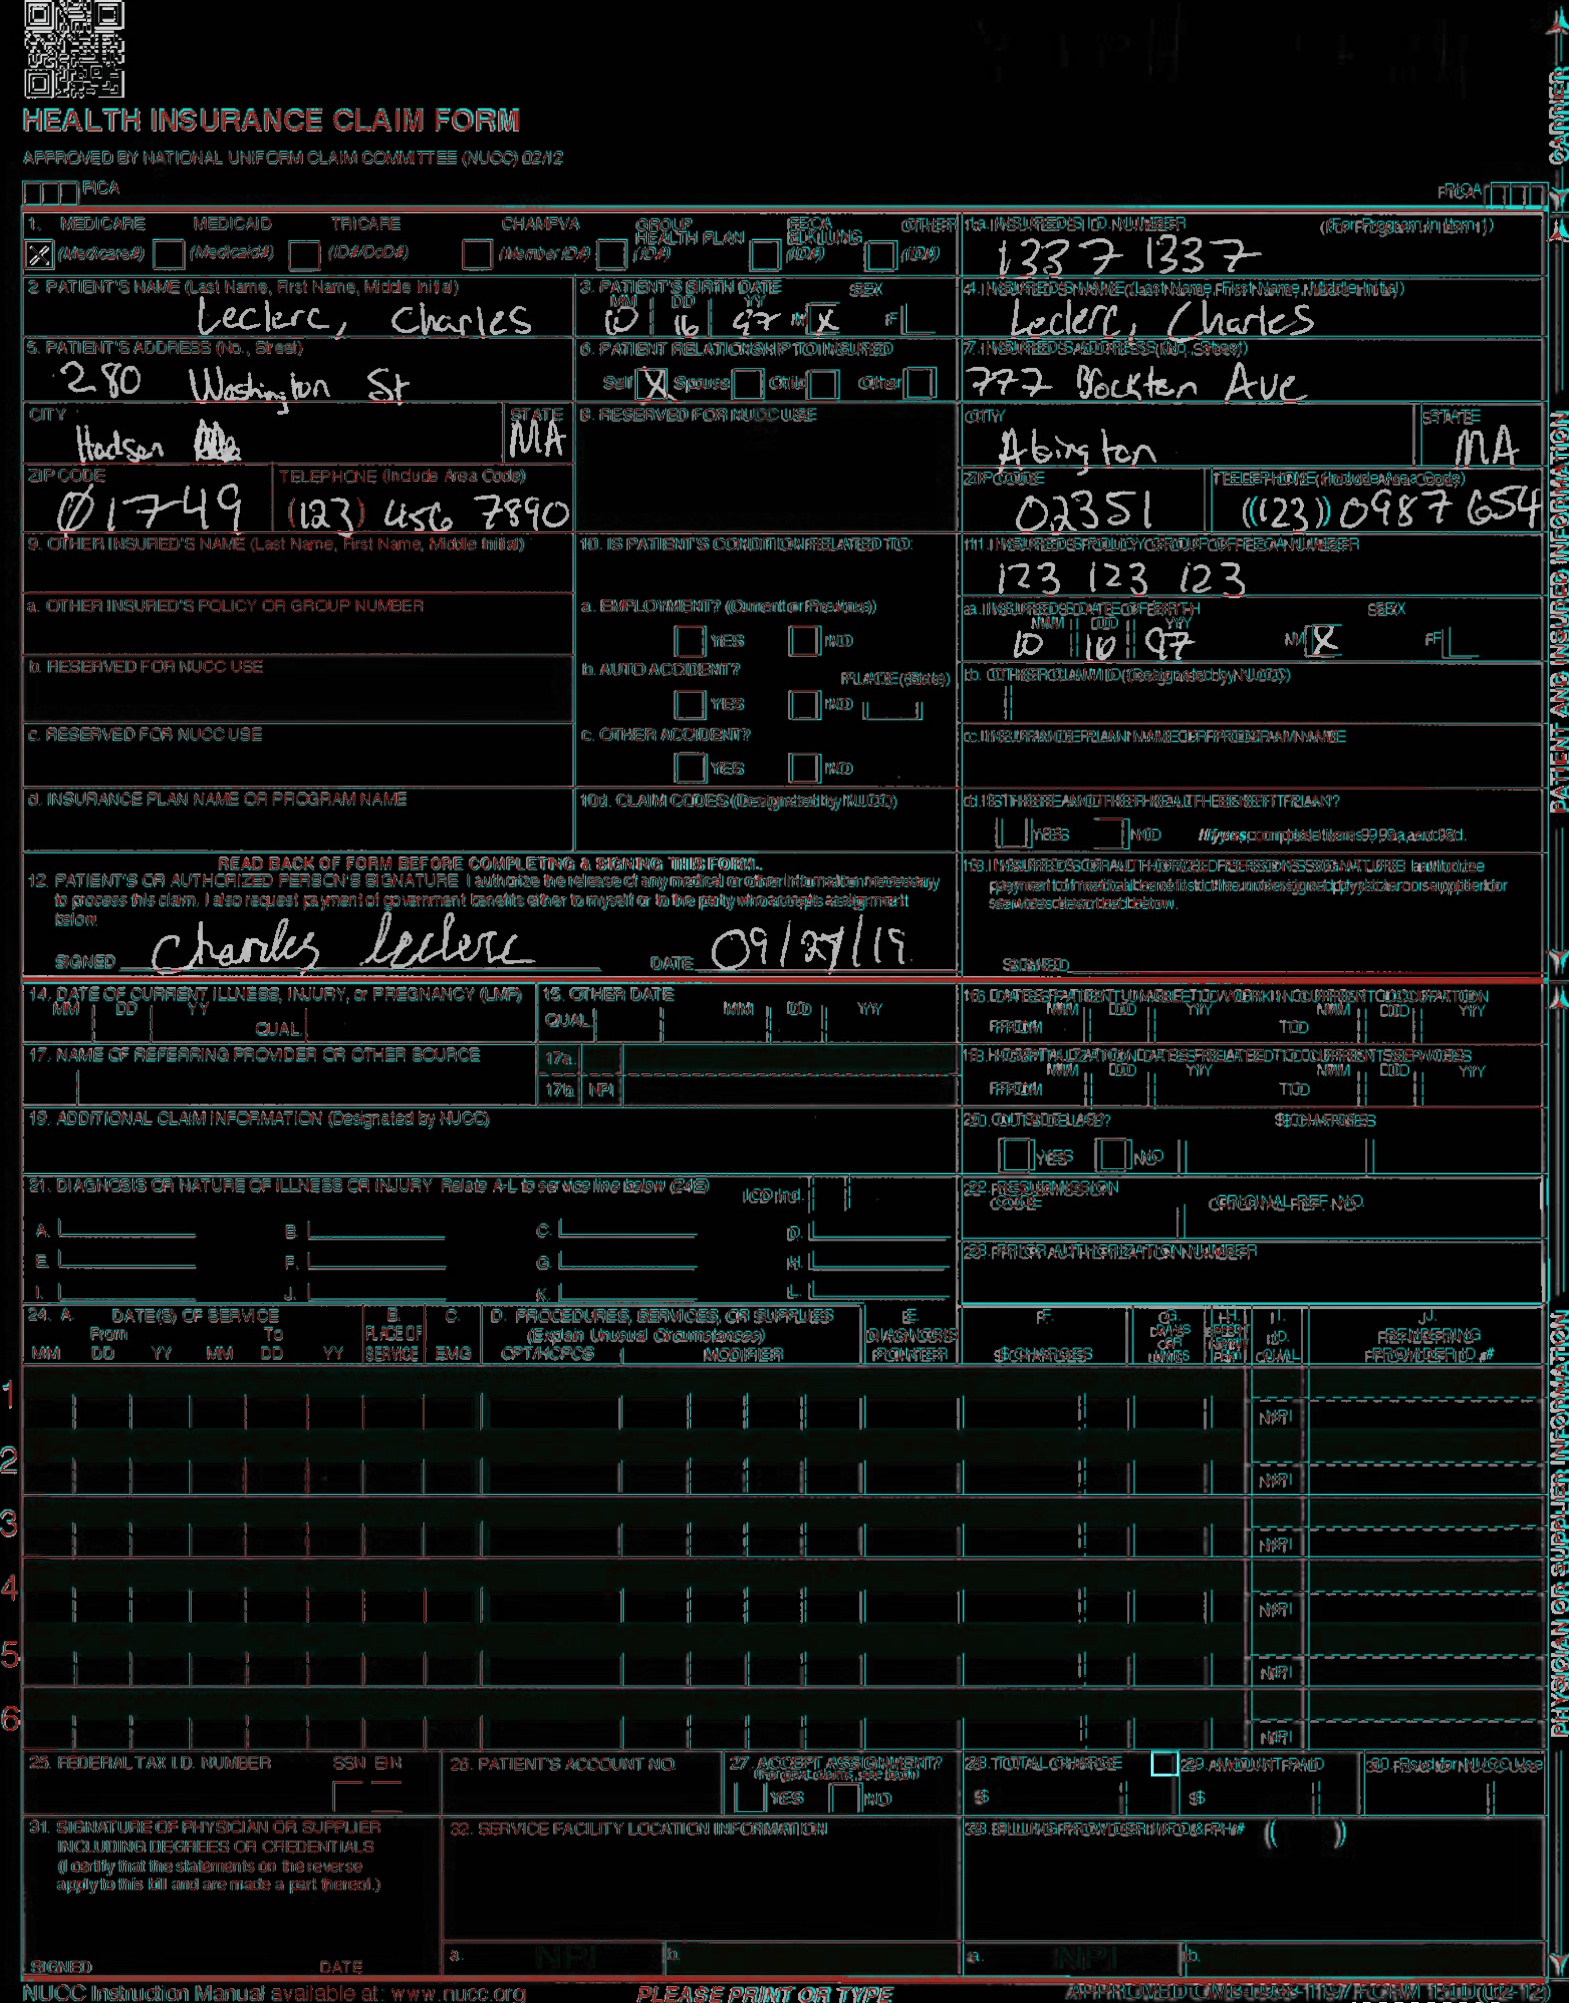 HEALTH INSURANCE CLAIM FORM
APPROVED BY NATIONAL UNIFORM CLAIM COMMITTEE (NUCC) 02/12
PICA
PICA
CARRIER
1. MEDICARE MEDICAID TRICARE CHAMPVA GROUP HEALTH PLAN FECA BLK LUNG OTHER
(Medicare#) (Medicaid#) (ID#/DoD#) (Member ID#) (ID#) (ID#) (ID#)
1a. INSURED'S I.D. NUMBER (For Program in Item 1)
1337 1337
2. PATIENT'S NAME (Last Name, First Name, Middle Initial)
Leclerc, Charles
3. PATIENT'S BIRTH DATE SEX
MM DD YY
10 16 97 M X F
4. INSURED'S NAME (Last Name, First Name, Middle Initial)
Leclerc, Charles
5. PATIENT'S ADDRESS (No., Street)
280 Washington St
6. PATIENT RELATIONSHIP TO INSURED
Self X Spouse Child Other
7. INSURED'S ADDRESS (No., Street)
777 Brockton Ave
CITY STATE
Hudson MA
8. RESERVED FOR NUCC USE
CITY STATE
Abington MA
ZIP CODE TELEPHONE (Include Area Code)
01749 (123) 456 7890
ZIP CODE TELEPHONE (Include Area Code)
02351 (123) 0987 654
9. OTHER INSURED'S NAME (Last Name, First Name, Middle Initial)
10. IS PATIENT'S CONDITION RELATED TO:
11. INSURED'S POLICY GROUP OR FECA NUMBER
123 123 123
a. OTHER INSURED'S POLICY OR GROUP NUMBER
a. EMPLOYMENT? (Current or Previous)
YES NO
a. INSURED'S DATE OF BIRTH SEX
MM DD YY
10 16 97 M X F
b. RESERVED FOR NUCC USE
b. AUTO ACCIDENT? PLACE (State)
YES NO
b. OTHER CLAIM ID (Designated by NUCC)
c. RESERVED FOR NUCC USE
c. OTHER ACCIDENT?
YES NO
c. INSURANCE PLAN NAME OR PROGRAM NAME
d. INSURANCE PLAN NAME OR PROGRAM NAME
10d. CLAIM CODES (Designated by NUCC)
d. IS THERE ANOTHER HEALTH BENEFIT PLAN?
YES NO If yes, complete items 9, 9a, and 9d.
READ BACK OF FORM BEFORE COMPLETING & SIGNING THIS FORM.
12. PATIENT'S OR AUTHORIZED PERSON'S SIGNATURE I authorize the release of any medical or other information necessary
to process this claim. I also request payment of government benefits either to myself or to the party who accepts assignment
below.
SIGNED Charles Leclerc DATE 09/27/19
13. INSURED'S OR AUTHORIZED PERSON'S SIGNATURE I authorize
payment of medical benefits to the undersigned physician or supplier for
services described below.
SIGNED
PATIENT AND INSURED INFORMATION
14. DATE OF CURRENT ILLNESS, INJURY, or PREGNANCY (LMP)
MM DD YY QUAL.
15. OTHER DATE
QUAL. MM DD YY
16. DATES PATIENT UNABLE TO WORK IN CURRENT OCCUPATION
MM DD YY MM DD YY
FROM TO
17. NAME OF REFERRING PROVIDER OR OTHER SOURCE
17a.
17b. NPI
18. HOSPITALIZATION DATES RELATED TO CURRENT SERVICES
MM DD YY MM DD YY
FROM TO
19. ADDITIONAL CLAIM INFORMATION (Designated by NUCC)
20. OUTSIDE LAB? $ CHARGES
YES NO
21. DIAGNOSIS OR NATURE OF ILLNESS OR INJURY Relate A-L to service line below (24E) ICD Ind.
A. B. C. D.
E. F. G. H.
I. J. K. L.
22. RESUBMISSION CODE ORIGINAL REF. NO.
23. PRIOR AUTHORIZATION NUMBER
24. A. DATE(S) OF SERVICE B. C. D. PROCEDURES, SERVICES, OR SUPPLIES E. F. G. H. I. J.
From To PLACE OF SERVICE EMG (Explain Unusual Circumstances) DIAGNOSIS POINTER DAYS OR UNITS ID. QUAL. RENDERING PROVIDER ID. #
MM DD YY MM DD YY CPT/HCPCS MODIFIER $ CHARGES
1 NPI
2 NPI
3 NPI
4 NPI
5 NPI
6 NPI
PHYSICIAN OR SUPPLIER INFORMATION
25. FEDERAL TAX I.D. NUMBER SSN EIN
26. PATIENT'S ACCOUNT NO.
27. ACCEPT ASSIGNMENT?
(For govt. claims, see back)
YES NO
28. TOTAL CHARGE
$
29. AMOUNT PAID
$
30. Rsvd for NUCC Use
31. SIGNATURE OF PHYSICIAN OR SUPPLIER
INCLUDING DEGREES OR CREDENTIALS
(I certify that the statements on the reverse
apply to this bill and are made a part thereof.)
SIGNED DATE
32. SERVICE FACILITY LOCATION INFORMATION
a. NPI b.
33. BILLING PROVIDER INFO & PH # ( )
a. NPI b.
NUCC Instruction Manual available at: www.nucc.org
PLEASE PRINT OR TYPE
APPROVED OMB-0938-1197 FORM 1500 (02-12)